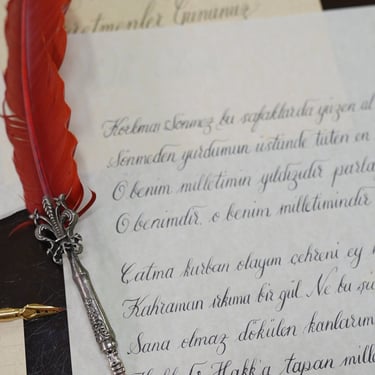 Öğretmenler Gününüz
Korkma, Sönmez bu şafaklarda yüzen al
Sönmeden yurdumun üstünde tüten en
O benim milletimin yıldızıdır parla
O benimdir, o benim milletimindir
Çatma kurban olayım çehreni ey
Kahraman ırkıma bir gül. Ne bu şi
Sana olmaz dökülen kanlarım
Hakk'a tapan mille